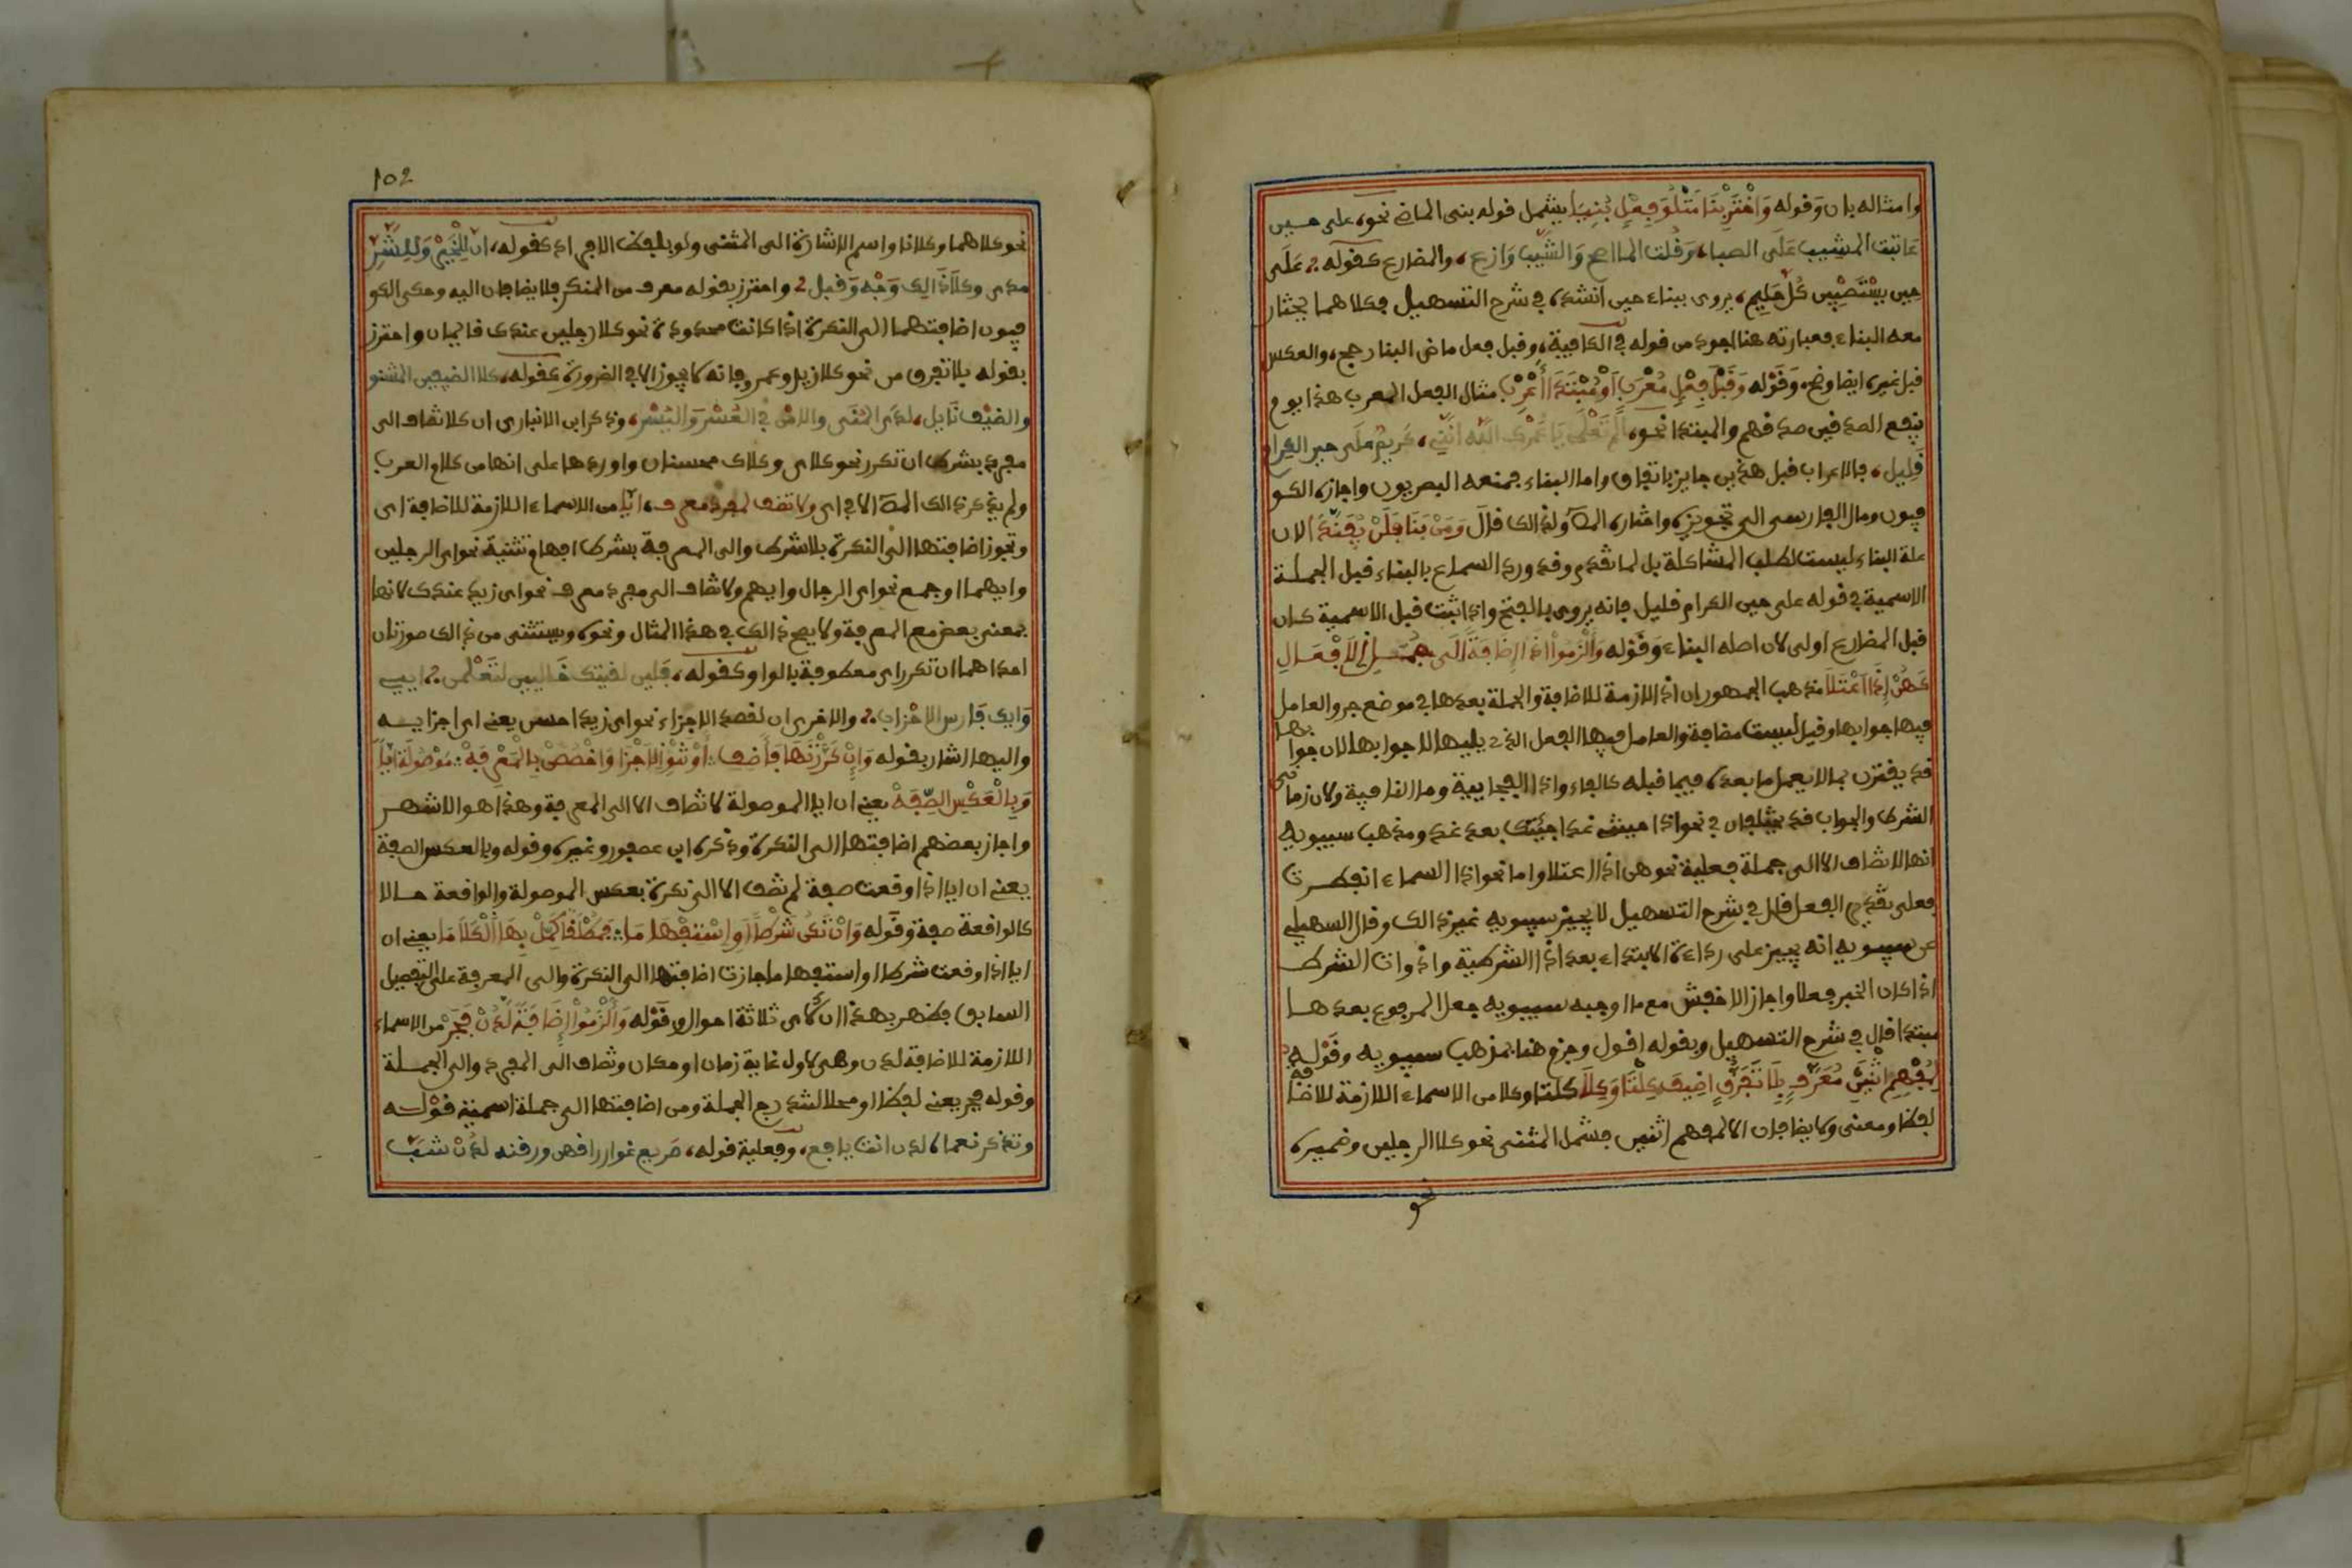 وامثاله بان وقوله وَاخْتَرْ بِنَا مَتْلُوِّ فِعْلٍ بُنِيَا يشمل قوله بنى الماضى نحو، على حين
عاتبت المشيب عَلَى الصبا، وَقُلت الما اصح وَالشَّيْب وَازع، والمضارع كقوله، عَلَى
حِين يسْتَصْبِين كُلّ حَلِيم، يروى ببناء حين انشده في شرح التسهيل فكلاهما يختار
معه البناء فعبارته هنا اجود من قوله في الكافية، وقبل فعل ماض البنا رجح، والعكس
قبل غيره ايضا وضح، وَقَوْله وَقَبْلَ فِعْلٍ مُعْرَبٍ اَوْ مُبْتَدَا أَعْرِبْ مثال الفعل المعرب هذا يوم
ينفع الصدقين صدقهم والمبتدا نحو، ألم تَعْلَمي يا عَمْرك الله انّني، كَرِيمٌ عَلَى حين الكرام
قَلِيل، فالاعراب قبل هذين جايز باتفاق واما البناء فمنعه البصريون واجازه الكو
فيون ومال الفارسى الى تجويزه واختاره المص ولذالك قالَ وَمَنْ بَنَا فَلَنْ يُفَنَّدَا لان
علة البناء ليست لطلب المشاكلة بل لما تقدم وقد ورد السماع بالبناء قبل الجملة
الاسمية في قوله على حين الكرام قليل فانه يروى بالفتح واذا ثبت قبل الاسمية كان
قبل المضارع اولى لان اصله البناء وَقَوْله وَأَلْزَمُوا اذَا إِضَافَةً اَلَى جُمَلِ الاَفْعَالِ
كَهُنْ إِذَا اعْتَلَا مذهب الجمهور ان اذا لازمة للاضافة والجملة بعدها في موضع جر والعامل
فيها جوابها وقيل ليست مضافة والعامل فيها الفعل الذى يليها لا جوابها لان جوابها
قد يقترن بما لا يعمل ما بعده فيما قبله كالفاء واذا الفجاءيية وما النافية ولان زمانى
الشرط والجواب قد يختلفان في نحو اذا جيتنى غدا جيتك بعد غد ومذهب سيبويه
انها لا تضاف الا الى جملة فعلية نحو هن اذا اعتلا واما نحو اذا السماء انفطرت
فعلى تقديم الفعل قال في شرح التسهيل لا يجيز سيبويه غير ذالك وقال السهيلى
عن سيبويه انه يجيز على رداءة الابتداء بعد اذا الشرطية واذوات الشرط
اذا كان الخبر فعلا واجاز الاخفش مع ما اوجبه سيبويه جعل المرفوع بعدها
مبتدا قال في شرح التسهيل وبقوله اقول وجزم هنا بمذهب سيبويه وقَوْله
لِمُفْهِمِ اثْنَيْنِ مُعَرَّفٍ بِلَا تَفَرُّقٍ اضِيفَ كِلْتَا وَكِلَا كلتا وكلا من الاسماء اللازمة للاضافة
لفظا ومعنى ولا يضافان الا لمفهم اثنين فشمل المثنى نحو كلا الرجلين وضميره
نحو
102
نحو كلاهما وكلانا واسم الاشارة الى المثنى ولو بلفظ الافراد كقوله، انّ لِلْخَيْرِ وَلِلشَّرِّ
مدى وكلا ذَالِك وَجْه وَقبل، واحترز بقوله معرف من المنكر فلا يضافان اليه وحكى الكو
فيون اضافتهما الى النكرة اذا كانت محدودة نحو كلا رجلين عندك قايمان واحترز
بقوله بلا تفرق من نحو كلا زيد وعمرو فانه لا يجوز الا في الضرورة كقوله، كلا الضيفين المشنو
والضيْف نَايل، لدى المُنَى والامن في العُسْر وَاليُسْر، وذكر ابن الانبارى ان كلا تضاف الى
مفرد بشرط ان تكرر نحو كلاى وكلاك محسنان واوردها على انها من كلام العرب
ولم يذكر ذالك المص الا في اى ولا تضف لمفرد معرف، أيّا من الاسماء اللازمة للاضافة اى
وتجوز اضافتها الى النكرة بلا شرط والى المعرفة بشرط افهام تثنية نحو اى الرجلين
وايهما او جمع نحو اى الرجال وايهم ولا تضاف الى مفرد معرف نحو اى زيد عندك لانها
بمعنى بعض مع المعرفة ولا يصح ذالك في هذا المثال ونحوه ويستثنى من ذالك صورتان
احداهما ان تكرر اى معطوفة بالواو كقوله، فَلين لقيتك خَاليين لتَعْلمن، ايى
وَايك فَارس الاحْزاب، والاخرى ان تقصد الاجزاء نحو اى زيد احسن يعنى اى اجزايه
واليها اشار بقوله وَإِنْ كَرَّرْتَهَا فَأَضِفِ، أَوْ تَنْوِ الاَجْزَا وَاخْصُصَنْ بِالْمَعْرِفَهْ، مَوْصُولَةً ايًّا
وَبِالْعَكْسِ الصِّفَهْ يعنى ان ايا الموصولة لا تضاف الا الى المعرفة وهذا هو الاشهر
واجاز بعضهم اضافتها الى النكرة وذكره ابن عصفور وغيره وقوله وبالعكس الصفة
يعنى ان ايا اذا وقعت صفة لم تضف الا الى نكرة بعكس الموصولة والواقعة حالا
كالواقعة صفة وقَوله وَانْ تَكُن شَرْطًا اَوِ اسْتِفْهَامَا، فَمُطْلَقًا كَمِّلْ بِهَا الْكَلاَمَا يعنى ان
ايا اذا وقعت شرطا او استفهاما جازت اضافتها الى النكرة والى المعرفة على التفصيل
السابق فظهر بهذا ان لاى ثلاثة احوال وقَوْله وَأَلْزَمُوا إِضَافَةً لَدُنْ فَجَرْ من الاسماء
اللازمة للاضافة لدن وهى لاول غاية زمان او مكان وتضاف الى المفرد والى الجملة
وقوله فجر يعنى لفظا او محلا لتندرج الجملة ومن اضافتها الى جملة اسمية قوله
وتذكر نعماه لدن انت يافع، وفعلية قوله، صَريع غوان راقهن ورقنه لدُنْ شَبَّ